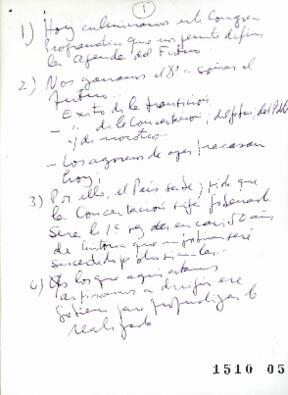 1
1) Hoy culminamos este Congreso
Programático que nos permite definir
la Agenda del Futuro.
2) Nos ganamos el D° a soñar el
futuro.
Exito de la transición
- " de la Concertación, del
y de nosotros
- Los agoreros de ayer fracasan
hoy!
3) Por ello, el País sabe y pide que
la Concertación siga gobernando.
Será la 1ª vez des en casi 50 años
de historia que un gobierno será
sucedido por otro similar.
4) los que aquí estamos
aspiramos a dirigir ese
gobierno para profundizar lo
realizado
1510 05